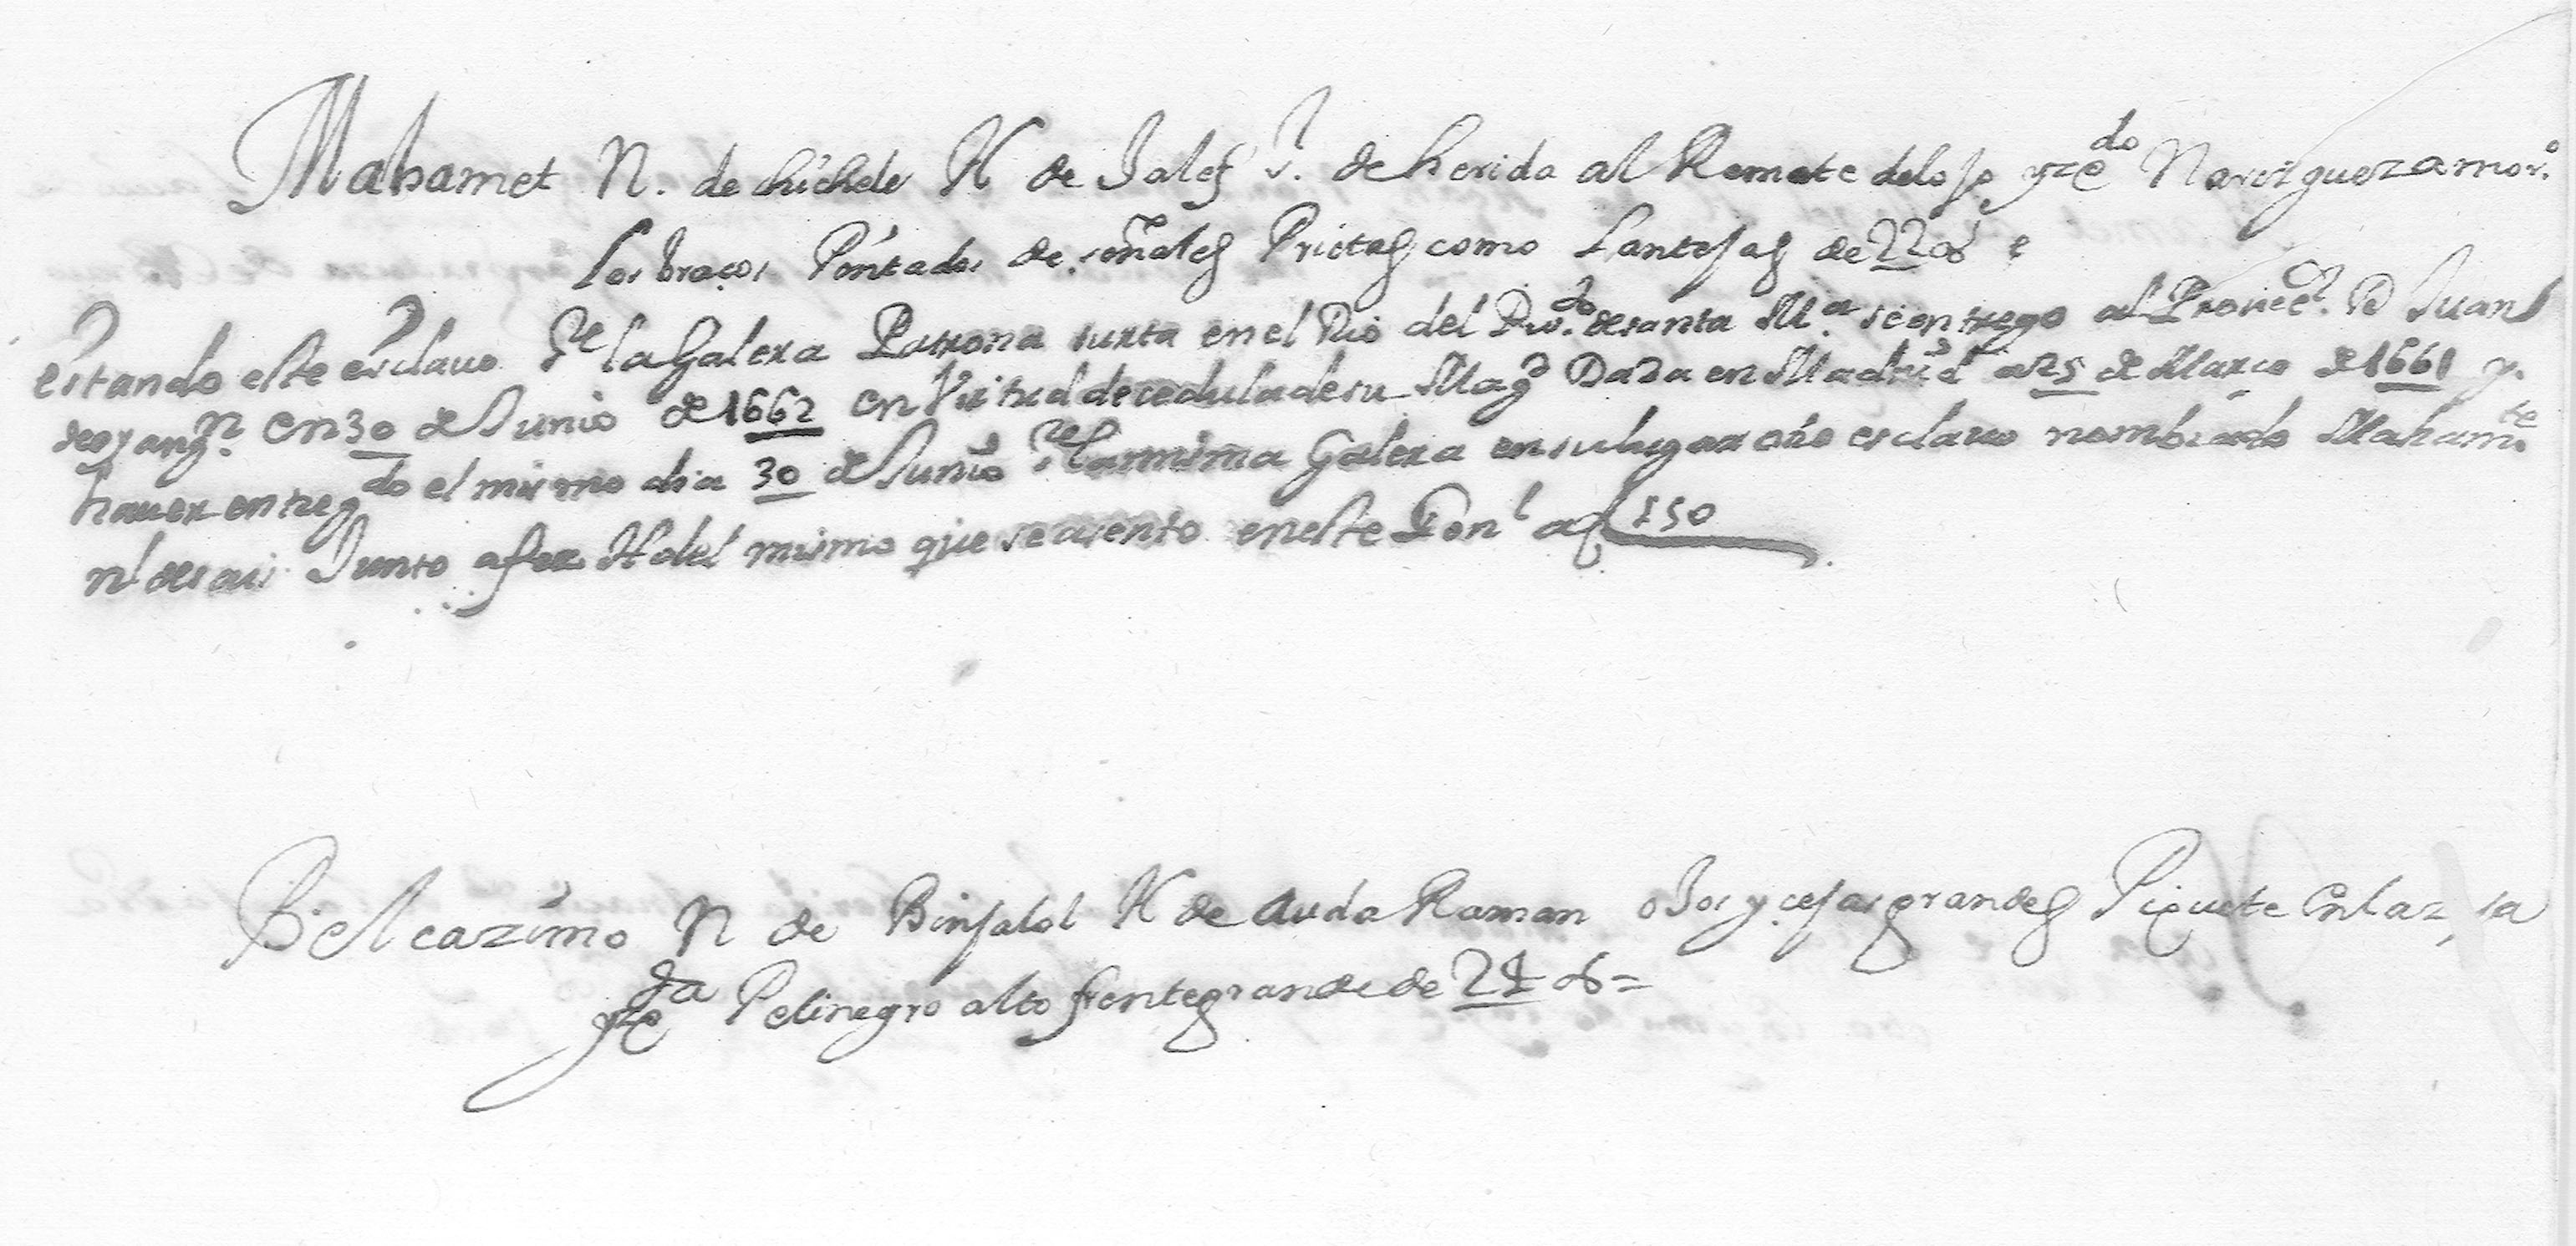 Mahamet N. de chichele H de Jalef S. de herida al Remate del ojo yzqdo Nariz gueza mor.o
los braços Pintados de señales Prietas como lantejas de 22 as
Estando este esclauo Se la Galera Patrona surta en el Rio del Puo.to de santa Ma. se entrego al Proueer. D Juan
de oyangn. en 30 de Junio de 1662 en Virtud de cedula de su Magd Dada en Madrid a 25 de Março de 1661 y.
hauer entregdo el mismo dia 30 de Junio la misma Galera en su lugar otro esclauo nombrado Mahamete
nl de Junto a fez H del mismo que se asento en este Genl a f 150
Belcazimo N de Binjalol H de Auda Raman ojos y cejas grandes Piquete en la
yzqda Pelinegro alto frente grande de 24 as =